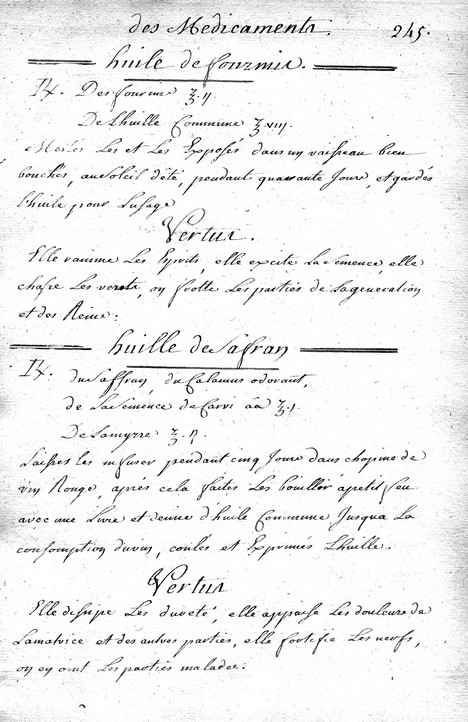 des Medicaments. 245.
huile de fourmis.
℞. Des fourmis ℥. ij
De Lhuille Commune, ℥. viij.
Meslés Les et Les Exposés dans un vaisseau bien
bouchés, au Soleil d'été, pendant quarante Jours, et gardés
l'huile pour Lusage
Vertus.
Elle ranime Les Esprits, elle excite La Semence, elle
chasse Les vents, on frotte Les parties de La generation
et des Reins.
huille de Safran
℞. du Saffran, du Calamus odorant,
de La Semence de Carvi āā ℥. j.
De La myrre ℥. ij
Laissés les infuser pendant cinq Jours dans chopine de
vin Rouge, aprés cela faites Les bouillir a petit feu
avec une Livre et demie d'huile Commune Jusqua La
consomption du vin, coulés et Exprimés Lhuille.
Vertus
Elle dissipe Les dureté, elle appaise Les douleurs de
La matrice et des autres parties, elle fortifie Les nerfs,
on en oint Les parties malades.